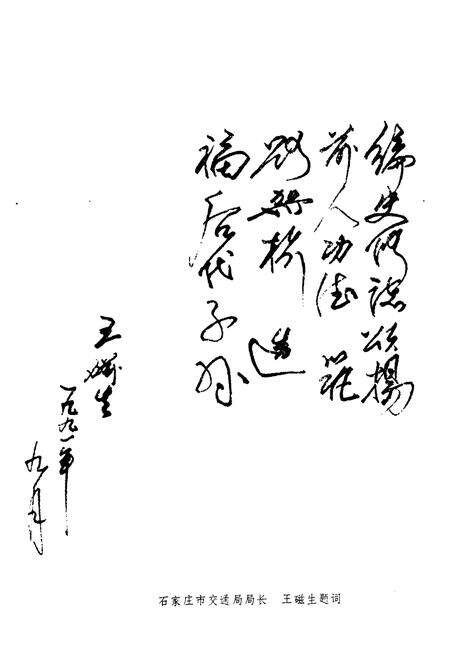 编史修誌颂揚
前人功德 筑
路架桥 造
福后代子孙
王磁生
一九九一年
九月
石家庄市交通局局长 王磁生题词